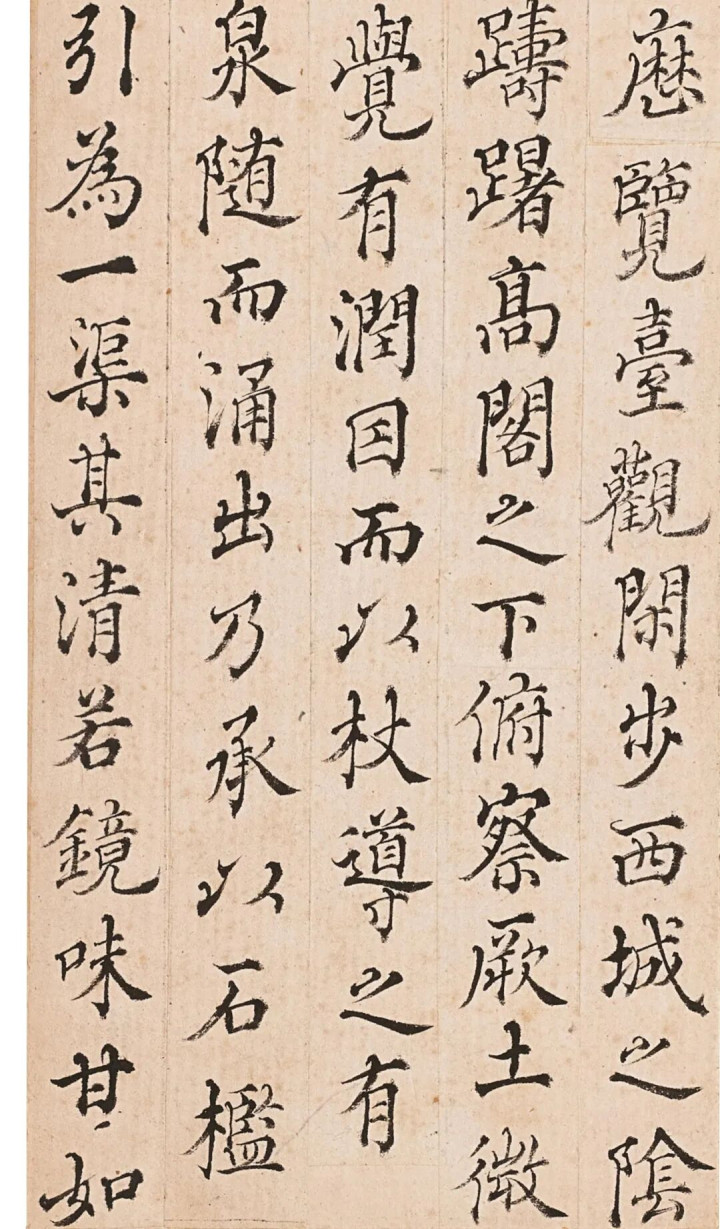 歷覽臺觀閑步西城之陰
躊躇高閣之下俯察厥土微
覺有潤因而以杖導之有
泉随而涌出乃承以石檻
引為一渠其清若鏡味甘如